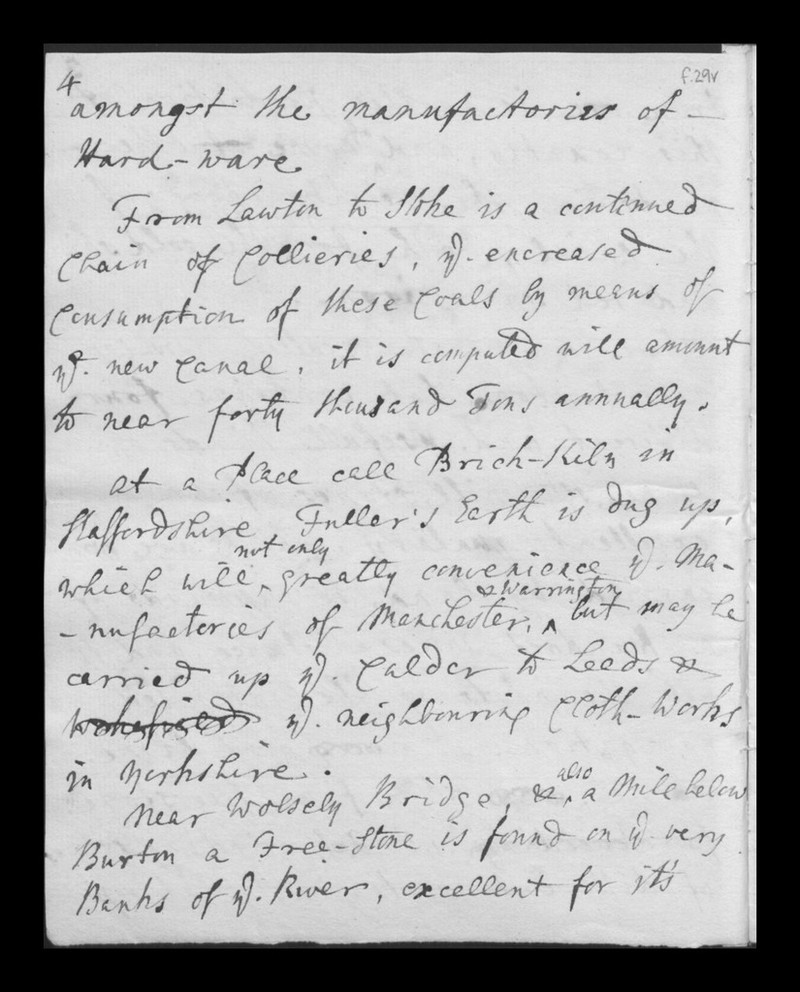 4
f.29v
amongst the manufactories of -
Hard-ware
From Lawton to Stoke is a continued
Chain of Collieries, ye. encreased
Consumption of these Coals by means of
ye. new Canal, it is computed will amount
to near forty thousand Tons annually.
at a Place call Brick-Kiln in
Staffordshire Fuller's Earth is dug up,
not only
which will ^ greatly convenience ye. Ma-
& Warrington
-nufactories of Manchester, ^ but may be
carried up ye. Calder to Leeds &
Wakefield ye. neighbouring Cloth-Works
in Yorkshire.
also
Near Wolsely Bridge, & ^ a Mile below
Burton a Free-Stone is found on ye. very
Banks of ye. River, excellent for it's